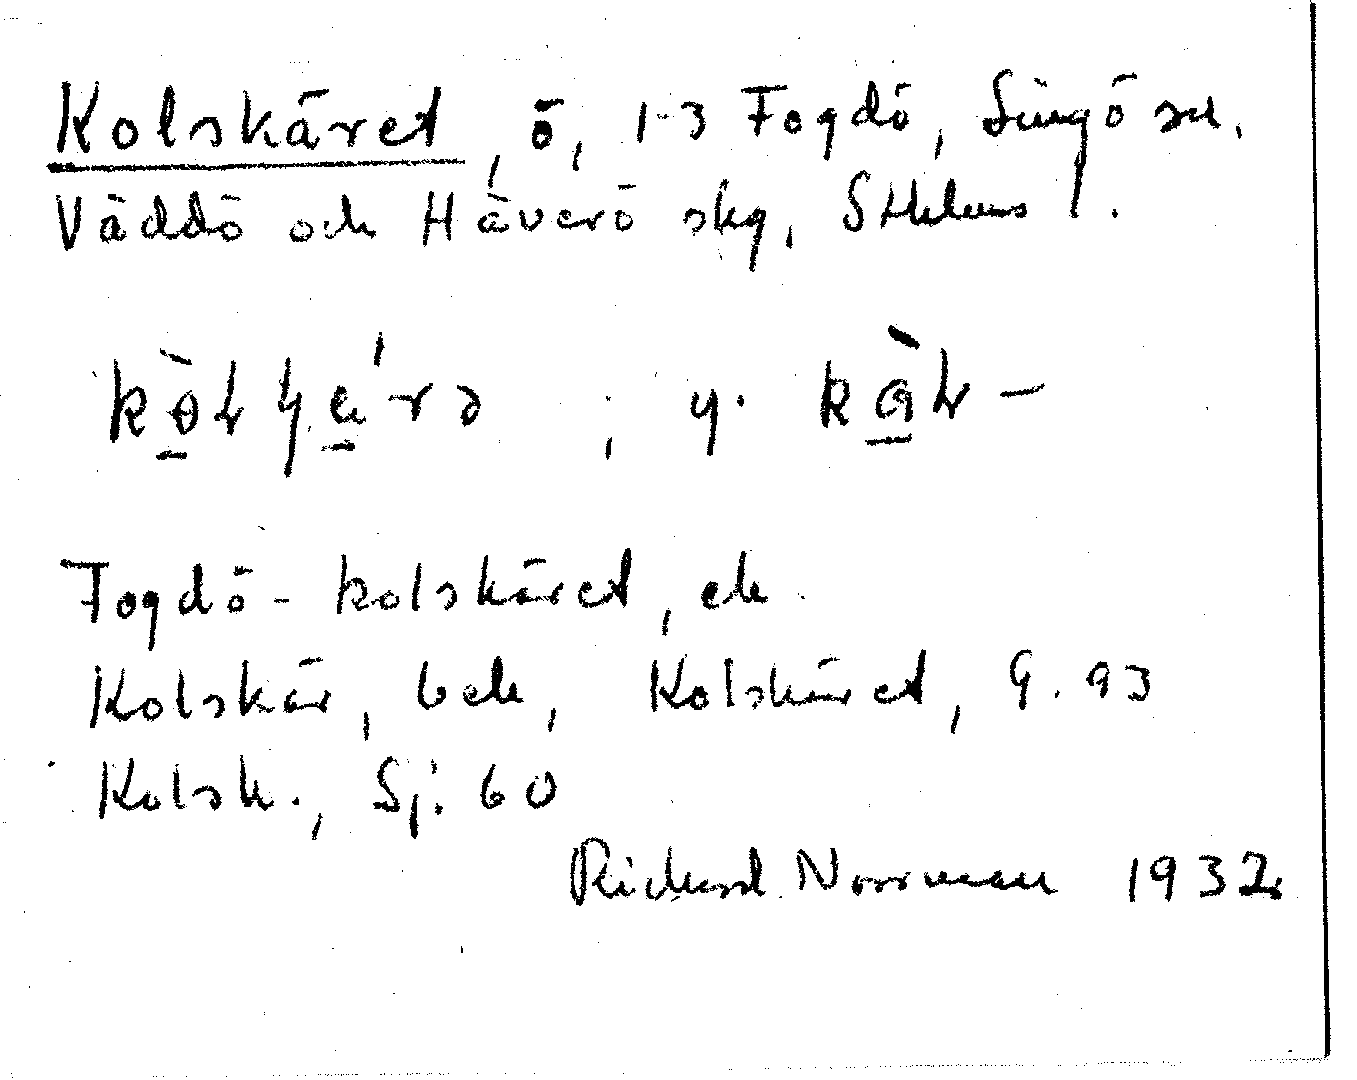 Kolskäret, ö, 1-3 Fogdö, Singö sn,
Väddö och Häverö skg, Sthlms l.
; y.
Fogdö-kolskäret, ek
Kolskär, bek, Kolskäret, G. 93
Kolsk., Sj. 60
Rickard Norrman 1932